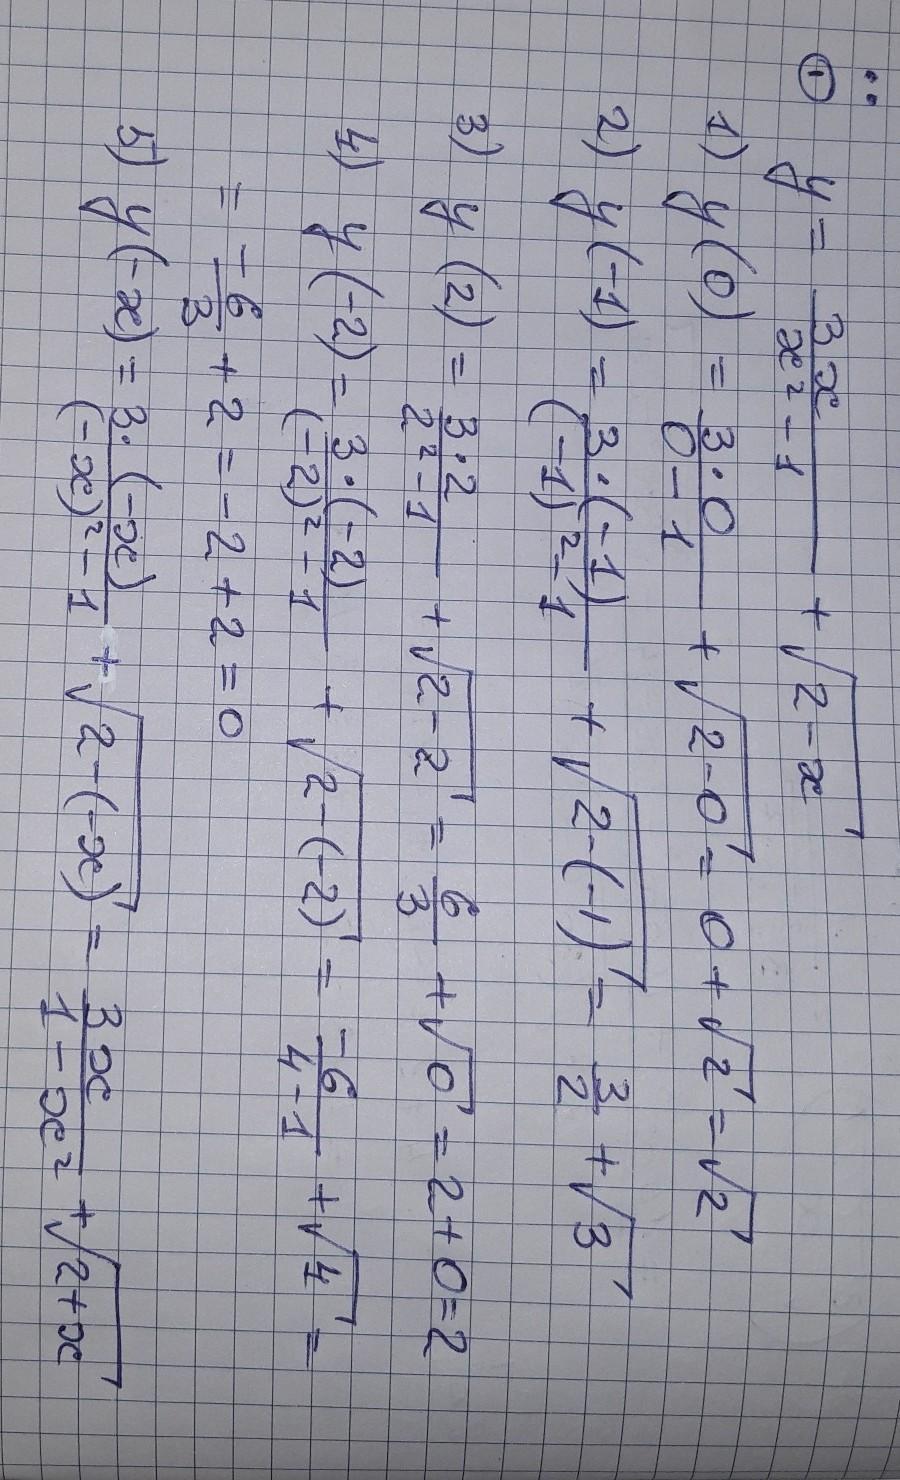 ①  y = 3x/(x² - 1) + √(2 - x)
1) y(0) = (3·0)/(0 - 1) + √(2-0) = 0 + √2 = √2
2) y(-1) = (3·(-1))/((-1)² - 1) + √(2-(-1)) = 3/2 + √3
3) y(2) = (3·2)/(2² - 1) + √(2 - 2) = 6/3 + √0 = 2 + 0 = 2
4) y(-2) = (3·(-2))/((-2)² - 1) + √(2-(-2)) = -6/(4 - 1) + √4 =
= -6/3 + 2 = -2 + 2 = 0
5) y(-x) = (3·(-x))/((-x)² - 1) + √(2-(-x)) = 3x/(1 - x²) + √(2+x)